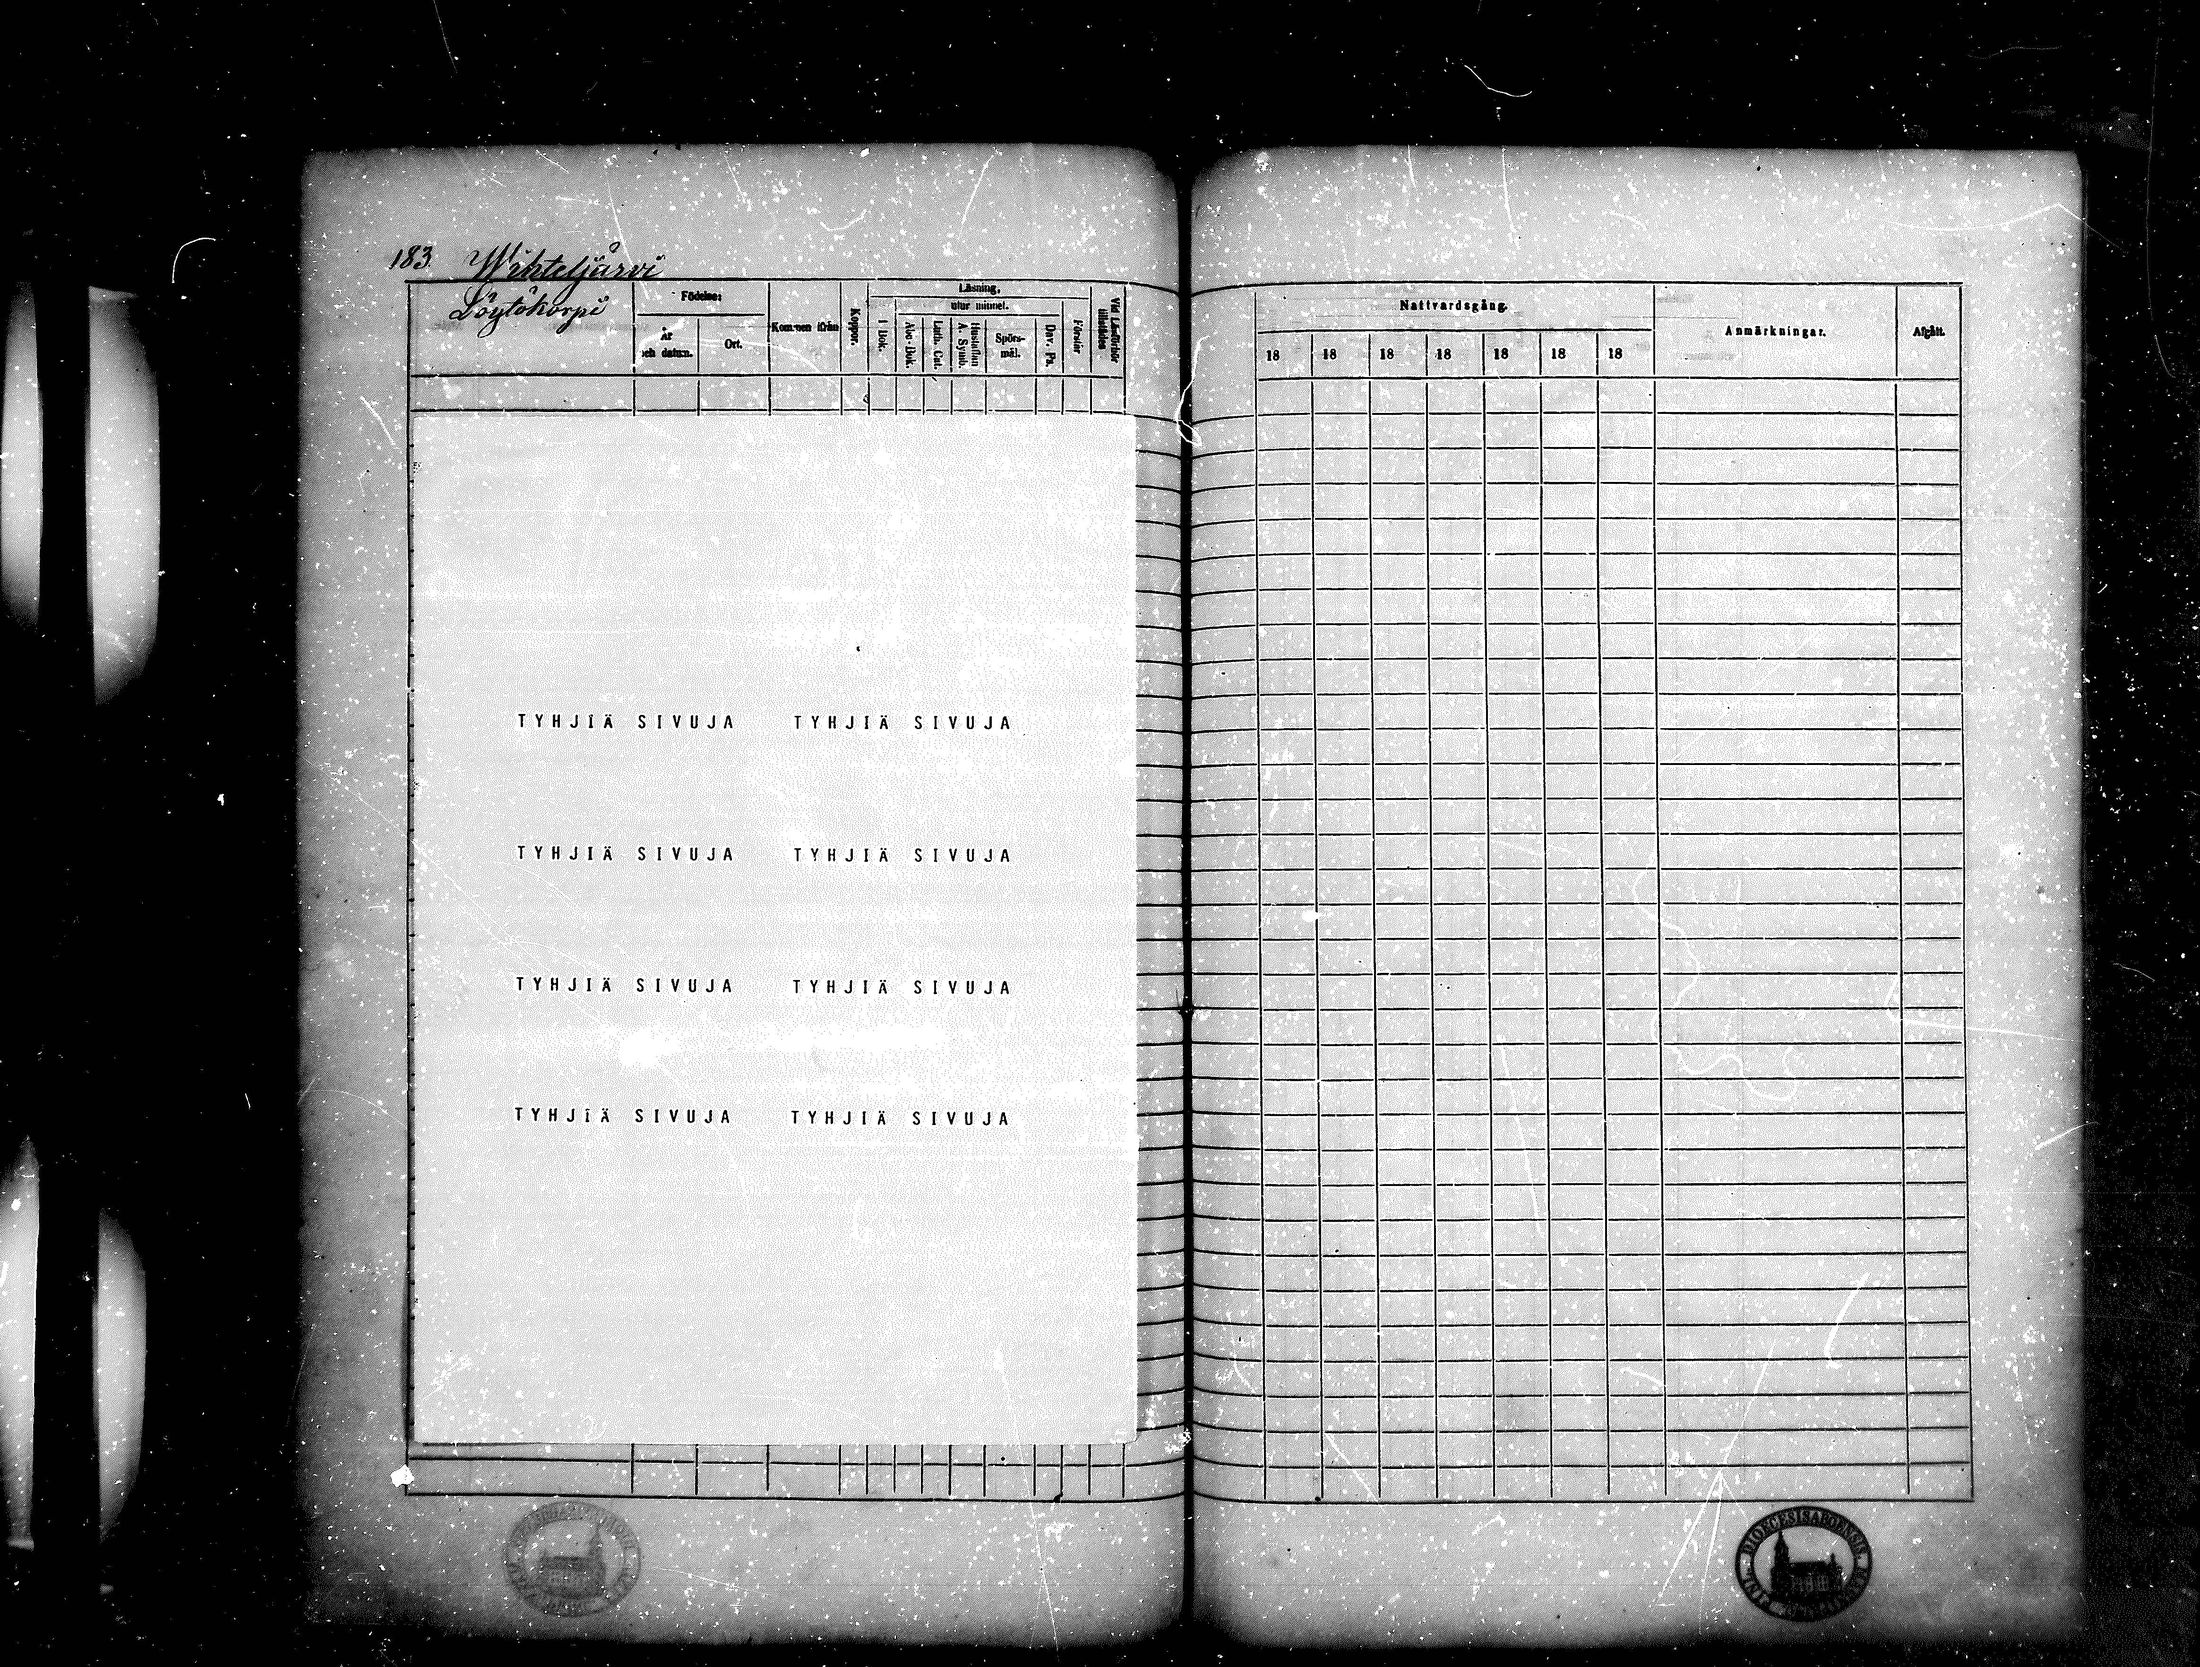 183. Wihteljärvi
Löytökorpi
Födelse:
År
och datum.
Ort.
Kommen ifrån
Koppor.
Läsning,
utur minnet.
I Bok.
Abc-Bok.
Luth. Cat.
Hustaflan
A. Symb.
Spörs-
mål.
Dav. Ps.
Förstår
Vid Läsförhör
tillstädes
Nattvardsgång.
18 18 18 18 18 18 18
Anmärkningar.
Afgått.
TYHJIÄ SIVUJA TYHJIÄ SIVUJA
TYHJIÄ SIVUJA TYHJIÄ SIVUJA
TYHJIÄ SIVUJA TYHJIÄ SIVUJA
TYHJIÄ SIVUJA TYHJIÄ SIVUJA